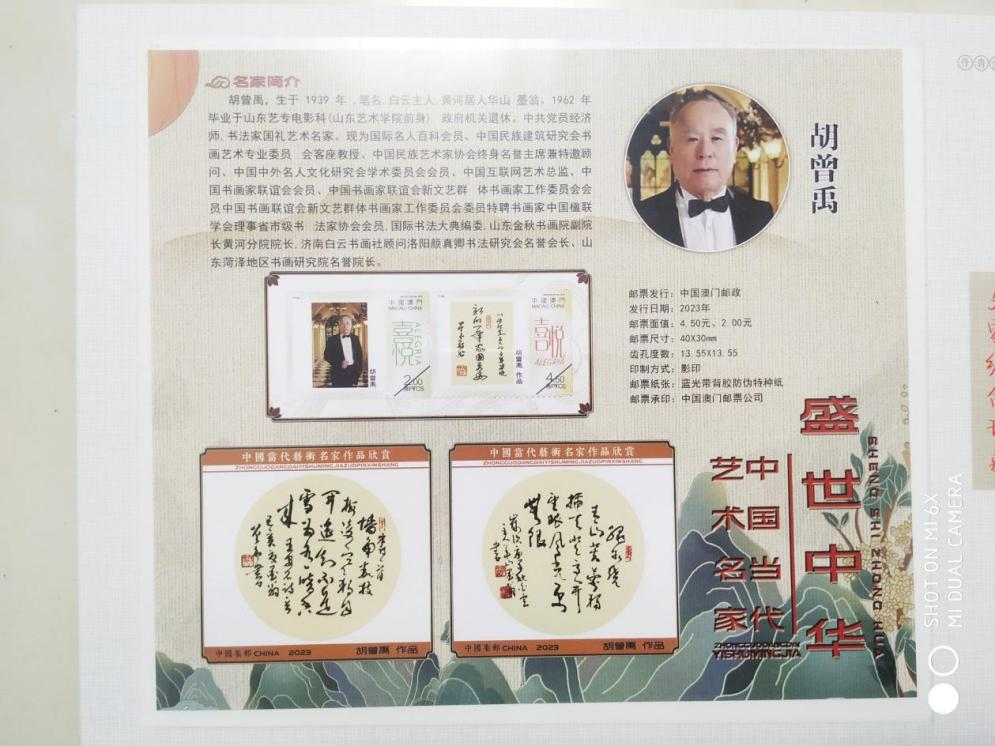 名家简介
胡曾禹，生于 1939 年 ,笔名,白云主人,黄河居人华山 墨翁。1962 年
毕业于山东艺专电影科(山东艺术学院前身) 政府机关退休。中共党员经济
师,书法家国礼艺术名家。现为国际名人百科会员、中国民族建筑研究会书
画艺术专业委员 会客座教授、中国民族艺术家协会终身名誉主席兼特邀顾
问、中国中外名人文化研究会学术委员会会员、中国互联网艺术总监、中
国书画家联谊会会员、中国书画家联谊会新文艺群 体书画家工作委员会会
员中国书画联谊会新文艺群体书画家工作委员会委员特聘书画家中国楹联
学会理事省市级书 法家协会会员,国际书法大典编委,山东金秋书画院副院
长黄河分院院长,济南白云书画社顾问洛阳颜真卿书法研究会名誉会长、山
东菏泽地区书画研究院名誉院长。
胡曾禹
邮票发行：中国澳门邮政
发行日期：2023年
邮票面值：4.50元、2.00元
邮票尺寸：40X30mm
齿孔度数：13.55X13.55
印制方式：影印
邮票纸张：蓝光带背胶防伪特种纸
邮票承印：中国澳门邮票公司
中國澳門
MACAU, CHINA
喜悦
ALEGRIA
胡曾禹
2.00
中國澳門
MACAU, CHINA
喜悦
ALEGRIA
胡曾禹 作品
4.50
中國當代藝術名家作品欣赏
ZHONGGUODANGDAIYISHUMINGJIAZUOPINXINSHANG
墙角数枝
梅凌寒独自
开遥知不是
雪为有暗香
来
中國集邮CHINA 2023
胡曾禹 作品
中國當代藝術名家作品欣赏
ZHONGGUODANGDAIYISHUMINGJIAZUOPINXINSHANG
中國集邮CHINA 2023
胡曾禹 作品
中国当代
艺术名家
ZHONGGUODANGDAI
YISHUMINGJIA
盛世中华
SHENG SHI ZHONG HUA
SHOT ON MI 6X
MI DUAL CAMERA